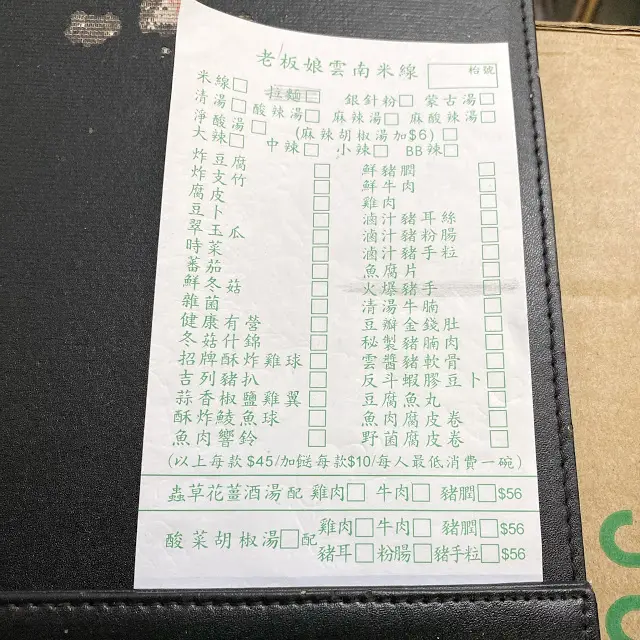 老板娘雲南米線 枱號
米線□ 拉麵□ 銀針粉□ 蒙古湯□
清湯□ 酸辣湯□ 麻辣湯□ 麻酸辣□
淨酸湯□ (麻辣胡椒湯加$6)□
大辣□ 中辣□ 小辣□ BB辣□
炸豆腐□ 鮮豬膶□
炸支竹□ 鮮牛肉□
腐皮□ 雞肉□
豆卜□ 滷汁豬耳絲□
翠玉瓜□ 滷汁豬粉腸□
時菜□ 滷汁豬手粒□
蕃茄□ 魚腐片□
鮮冬菇□ 火爆豬手□
雜菌□ 清湯牛腩□
健康有營□ 豆瓣金錢肚□
冬菇什錦□ 秘製豬腩肉□
招牌酥炸雞球□ 雲醬豬軟骨□
吉列豬扒□ 反斗蝦膠豆卜□
蒜香椒鹽雞翼□ 豆腐魚丸□
酥炸鯪魚球□ 魚肉腐皮卷□
魚肉響鈴□ 野菌腐皮卷□
(以上每款$45/加餸每款$10/每人最低消費一碗)
蟲草花薑酒湯配 雞肉□ 牛肉□ 豬膶□$56
酸菜胡椒湯□配 雞肉□ 牛肉□ 豬膶□$56
豬耳□ 粉腸□ 豬手粒□$56